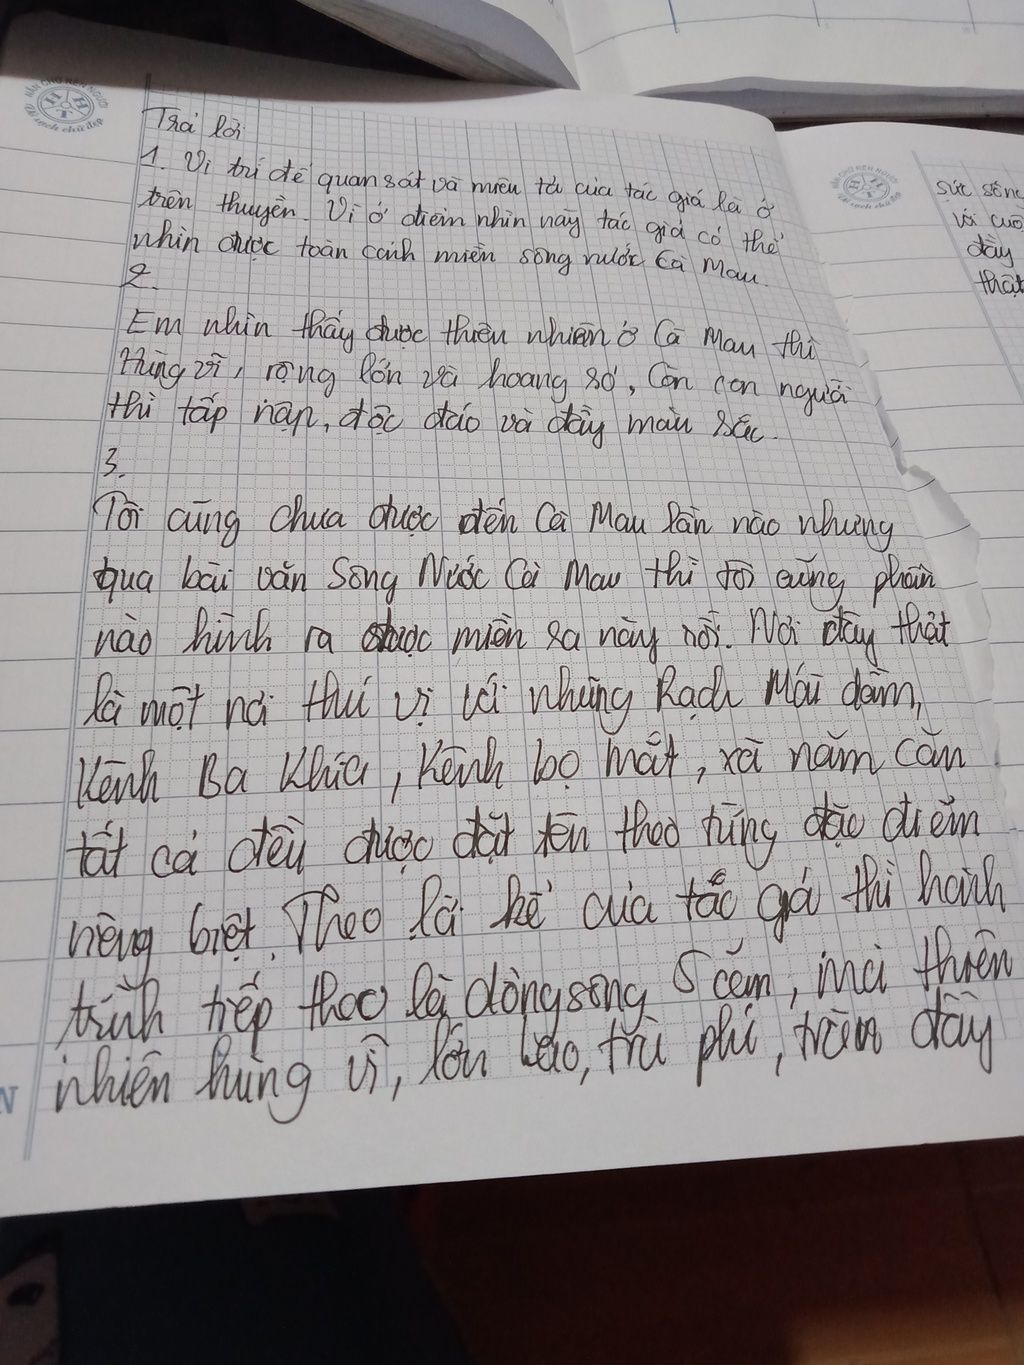 Trả lời
1. Vị trí để quan sát và miêu tả của tác giả là ở
trên thuyền. Vì ở điểm nhìn này tác giả có thể
nhìn được toàn cảnh miền sông nước Cà Mau.
2.
Em nhìn thấy được thiên nhiên ở Cà Mau thì
Hùng vĩ, rộng lớn và hoang sơ, Còn con người
thì tấp nập, độc đáo và đầy màu sắc.
3.
Tôi cũng chưa được đến Cà Mau lần nào nhưng
qua bài văn Sông Nước Cà Mau thì tôi cũng phần
nào hình ra được miền xa này rồi. Nơi đây thật
là một nơi thú vị với những Rạch Mái dầm,
Kênh Ba Khía, Kênh bọ mắt, xã năm Căn
tất cả đều được đặt tên theo từng đặc điểm
riêng biệt. Theo lời kể của tác giả thì hành
trình tiếp theo là dòng sông 5 căm, mà thiên
nhiên hùng vĩ, lớn lao, trù phú, tràn đầy
sức sống
với
đầy
thật